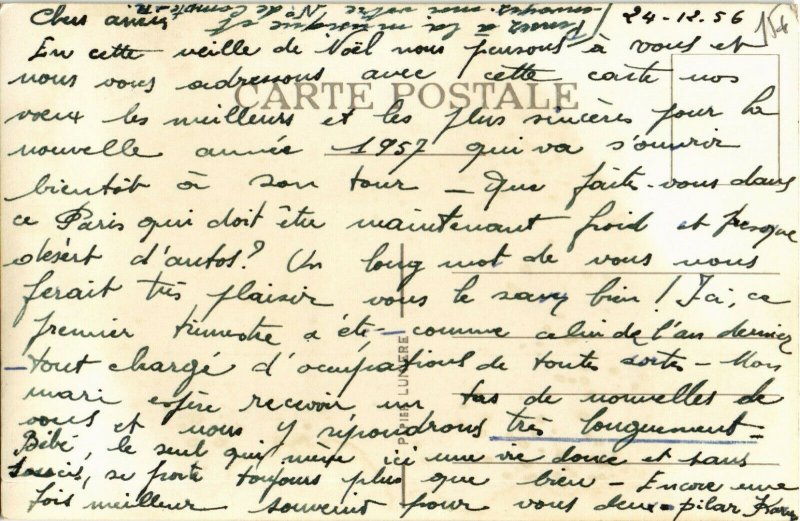 24-12-56
Chers amis,
En cette veille de Noël nous pensons à vous et
nous vous adressons avec cette carte nos
CARTE POSTALE
vœux les meilleurs et les plus sincères pour la
nouvelle année 1957 qui va s'ouvrir
bientôt à son tour — Que faites-vous dans
ce Paris qui doit être maintenant froid et presque
désert d'autos? Un long mot de vous nous
ferait très plaisir vous le savez bien! Ici, ce
premier trimestre a été, — comme celui de l'an dernier
— tout chargé d'occupations de toutes sortes — Mon
mari espère recevoir un tas de nouvelles de
vous et nous y répondrons très longuement —
Bébé, le seul qui mène ici une vie douce et sans
soucis, se porte toujours plus que bien — Encore une
fois meilleur souvenir pour vous deux — pilar
Pensez à la musique et
envoyez-moi votre N° de Compte
PAPIER LUMIERE